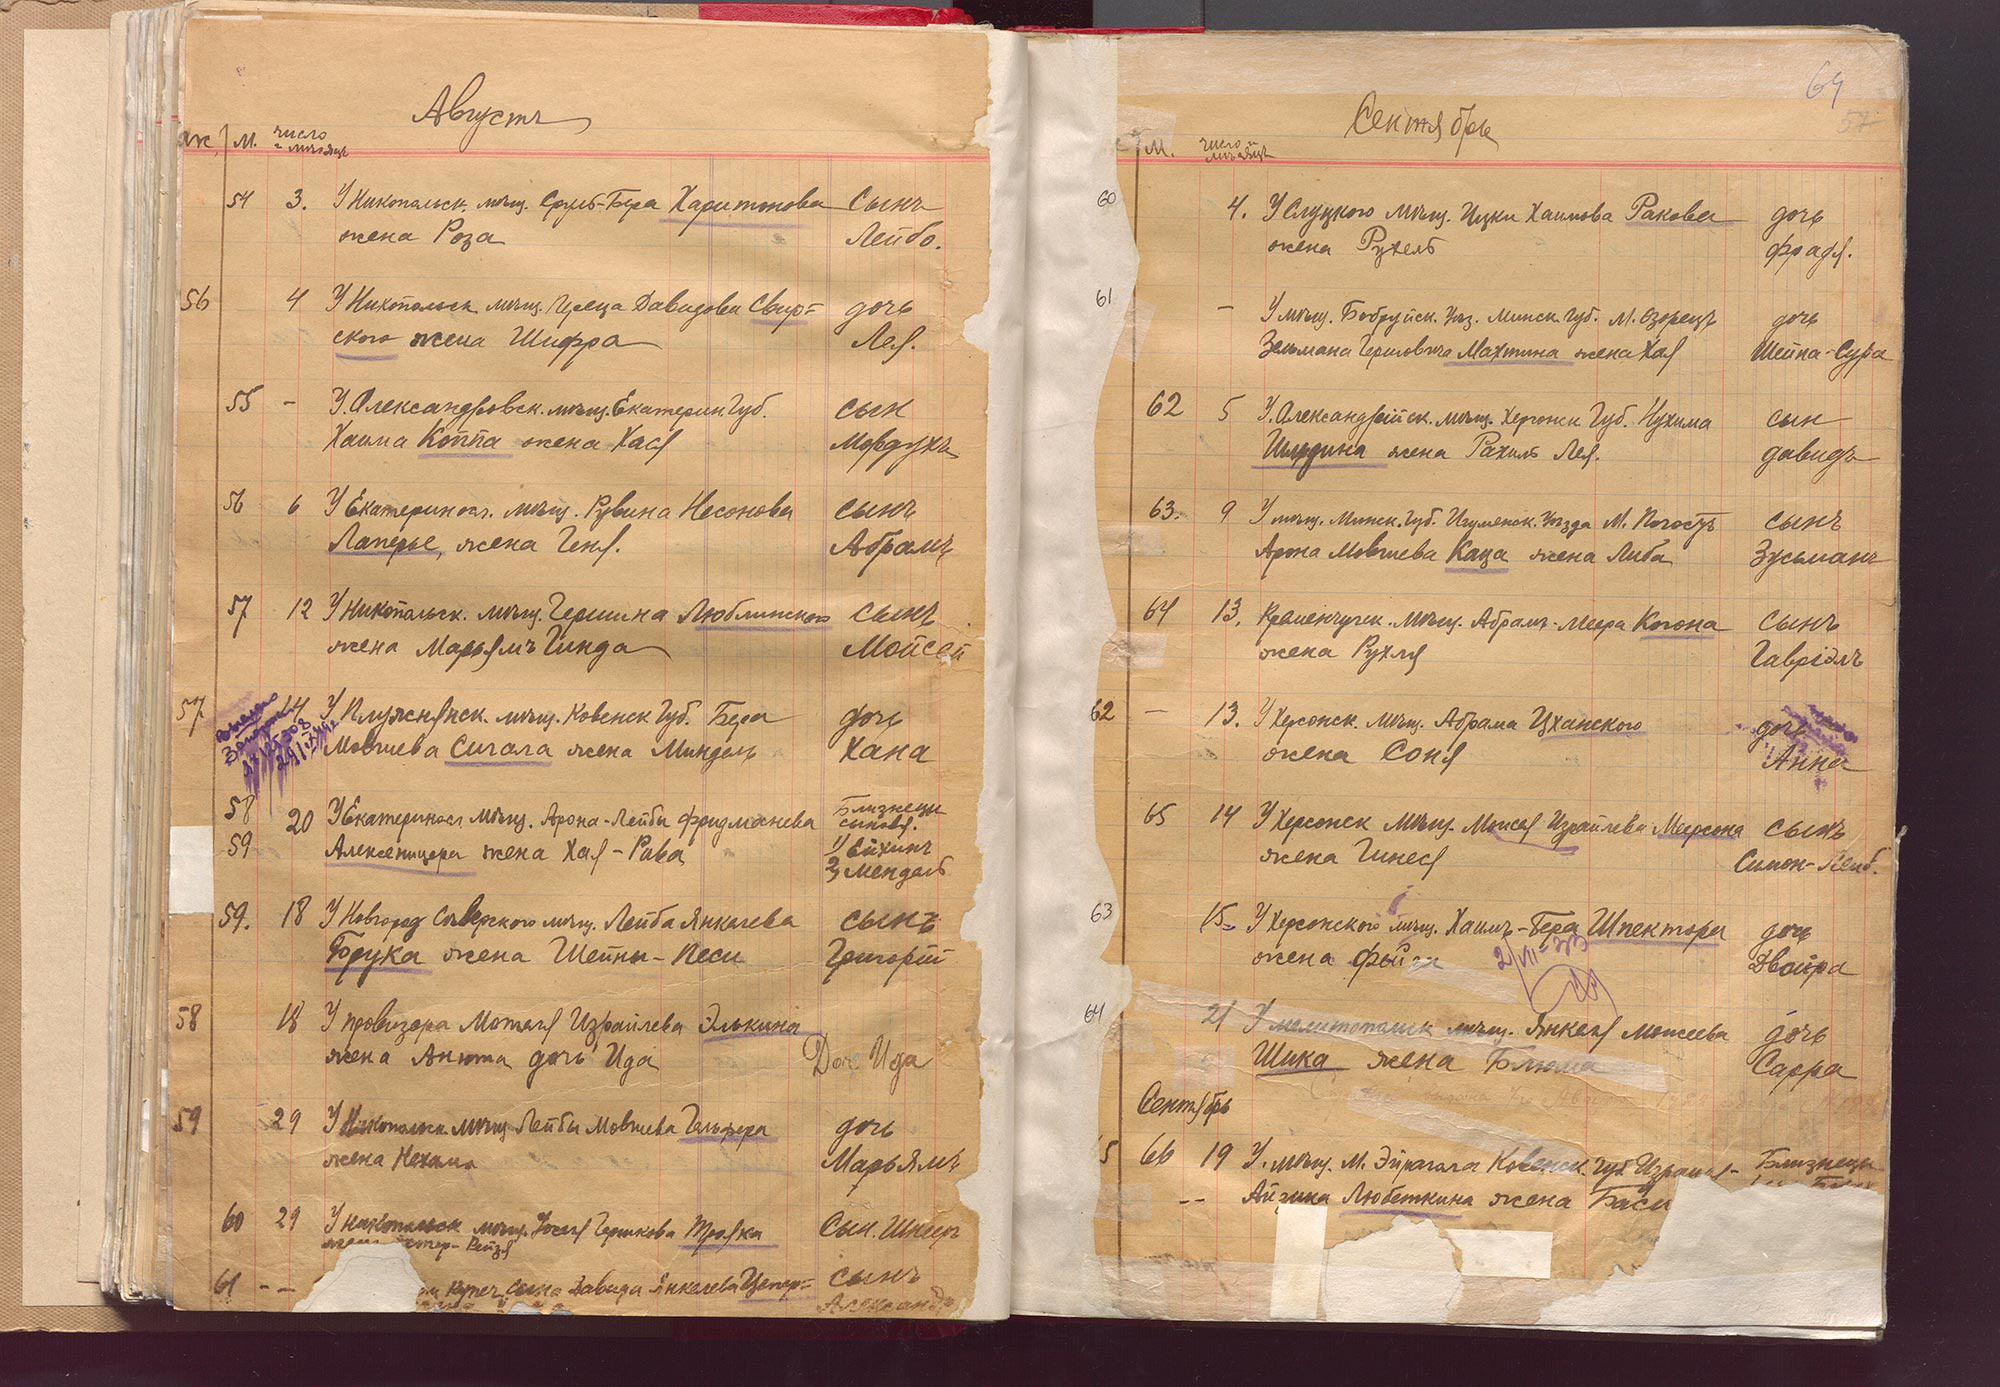 Августъ
М. число и мѣсяцъ
54 3. У Никопольск. мѣщ. Сруль-Бера Харитонова сынъ
жена Роза Лейбо.
56 4 У Никопольск. мѣщ. Герца Давидова Свир=дочь
ского жена Шифра Лея.
55 - У Александровск. мѣщ. Екатерин. Губ. сын
Хаима Коппа жена Хася Мордухъ
56 6 У Екатеринос. мѣщ. Рувина Несонова сынъ
Лаперье, жена Геня. Абрамъ
57 12 У Никопольск. мѣщ. Гершина Люблинского сынъ
жена Марьямъ Гинда Мойсей
57 14 У Плужнянск. мѣщ. Ковенск. Губ. Бера дочь
Мовшева Сигала жена Миндель Хана
58 20 У Екатеринос. мѣщ. Арона-Лейбы Фридманева Близнецы
сыновя.
59 Алексеницера жена Хая-Рива 1)
2) Мендель
59. 18 У Новгород Северского мѣщ. Лейба Янкелева сынъ
Борука жена Шейны-Песи Григорій
58 18 У провизора Мотеля Израилева Элькина
жена Анюта дочь Ида Доч Ида
59 29 У Никопольск мѣщ Лейбы Мовшева Гельфера дочь
жена Нехама Марьямъ
60 29 У Никопольск мѣщ. Іосея Гершкова Трояка Сын. Шнеер
жена Эстер-Рейзя
61 - - купеч. сына Давида Янкелева Цепер= сынъ
Александръ
64
57
Сентябрь
М. число и мѣсяцъ
60 4. У Слуцкого мѣщ. Ицки Хаимова Ракова дочь
жена Рухель Фрадя.
61 - У мѣщ. Бобруйск. Уѣз. Минск. Губ. М. Озорецъ дочь
Зельмана Гершовича Махтина жена Хая Шейна-Сура
62 5 У. Александрійск. мѣщ. Херсонск Губ. Нухима сын
Шырдина жена Рахиль Лея. Давидъ
63. 9 У мѣщ. Минск. Губ. Игуменск. Уѣзда М. Погостъ сынъ
Арона Мовшева Каца жена Либа Зусьманъ
64 13. Кременчугск. мѣщ. Абрамъ-Меера Когона сынъ
жена Рухля Гавріэлъ
62 - 13. У Херсонск. мѣщ. Абрама Цханского дочь
жена Соня Анна
65 14 У Херсонск мѣщ. Моисея Израилева Меерсона сынъ
жена Гинеся Симон-Лейб.
63 15- У Херсонского мѣщ. Хаимъ-Бера Шпектора дочь
жена Фейга Двойра
2/VII-33
64 21 У мелитопольск мѣщ. Янкеля Моисеева дочь
Шика жена Блюма Сарра
Сентябрь
5 66 19 У. мѣщ. М. Эйрагала Ковенск. Губ. Израиля- Близнецы
-- Айзика Любеткина жена Баси